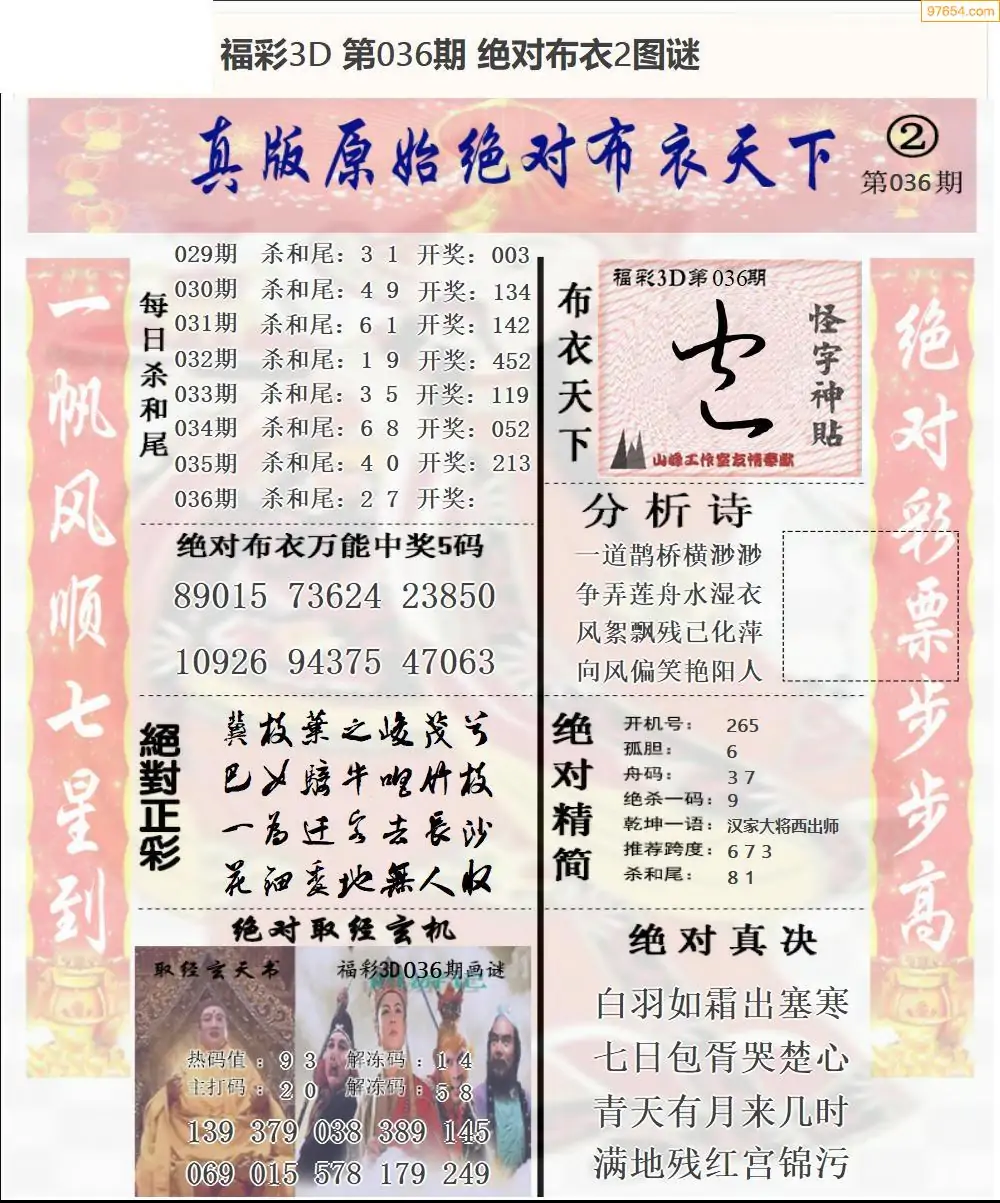 97654.com
福彩3D 第036期 绝对布衣2图谜
真版原始绝对布衣天下
②
第036期
一帆风顺七星到
每日杀和尾
029期 杀和尾：3 1 开奖：003
030期 杀和尾：4 9 开奖：134
031期 杀和尾：6 1 开奖：142
032期 杀和尾：1 9 开奖：452
033期 杀和尾：3 5 开奖：119
034期 杀和尾：6 8 开奖：052
035期 杀和尾：4 0 开奖：213
036期 杀和尾：2 7 开奖：
绝对布衣万能中奖5码
89015 73624 23850
10926 94375 47063
絕對正彩
冀枝葉之峻茂兮
一為迁客去長沙
花鈿委地無人収
绝对取经玄机
取经玄天书
福彩3D036期画谜
热码值：9 3 解冻码：1 4
主打码：2 0 解冻码：5 8
139 379 038 389 145
069 015 578 179 249
布衣天下
福彩3D第036期
怪字神貼
山峰工作室友情奉献
分析诗
一道鹊桥横渺渺
争弄莲舟水湿衣
风絮飘残已化萍
向风偏笑艳阳人
绝对精简
开机号： 265
孤胆： 6
舟码： 3 7
绝杀一码：9
乾坤一语：汉家大将西出师
推荐跨度：6 7 3
杀和尾： 8 1
绝对真决
白羽如霜出塞寒
七日包胥哭楚心
青天有月来几时
满地残红宫锦污
绝对彩票步步高